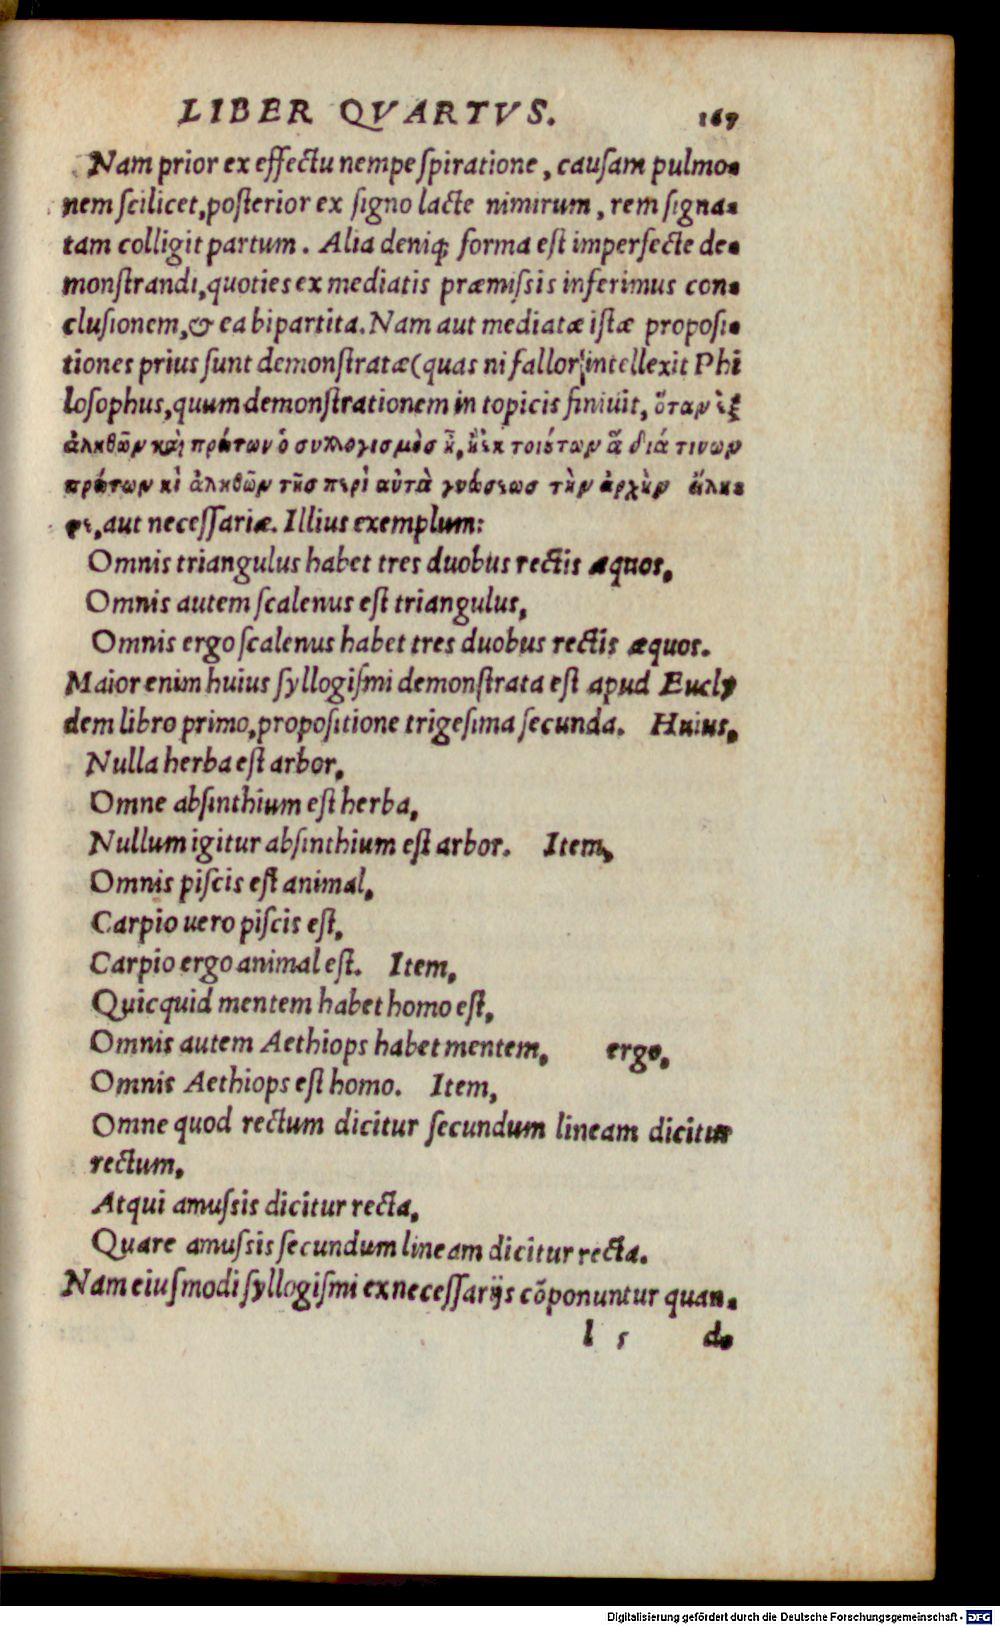 LIBER QVARTVS. 169
Nam prior ex effectu nempe spiratione, causam pulmo-
nem scilicet, posterior ex signo lacte nimirum, rem signa-
tam colligit partum. Alia deniq; forma est imperfecte de-
monstrandi, quoties ex mediatis præmissis inferimus con-
clusionem, & ea bipartita. Nam aut mediatæ istæ proposi-
tiones prius sunt demonstratæ (quas ni fallor intellexit Phi
losophus, quum demonstrationem in topicis finiuit, ὅταν ἐξ
ἀληθῶν καὶ πρώτων ὁ συλλογισμὸσ ᾖ, ἢ ἐκ τοιούτων ἃ διά τινων
πρώτων κὶ ἀληθῶν τῆσ περὶ αὐτὰ γνώσεωσ τὴν ἀρχὴν εἴλη-
φε, aut necessariæ. Illius exemplum:
Omnis triangulus habet tres duobus rectis æquos,
Omnis autem scalenus est triangulus,
Omnis ergo scalenus habet tres duobus rectis æquos.
Maior enim huius syllogismi demonstrata est apud Eucly
dem libro primo, propositione trigesima secunda. Huius,
Nulla herba est arbor,
Omne absinthium est herba,
Nullum igitur absinthium est arbor. Item,
Omnis piscis est animal,
Carpio uero piscis est,
Carpio ergo animal est. Item,
Quicquid mentem habet homo est,
Omnis autem Aethiops habet mentem, ergo,
Omnis Aethiops est homo. Item,
Omne quod rectum dicitur secundum lineam dicitur
rectum,
Atqui amussis dicitur recta,
Quare amussis secundum lineam dicitur recta.
Nam eiusmodi syllogismi ex necessarijs cõponuntur quan-
l 5 do
Digitalisierung gefördert durch die Deutsche Forschungsgemeinschaft - DFG